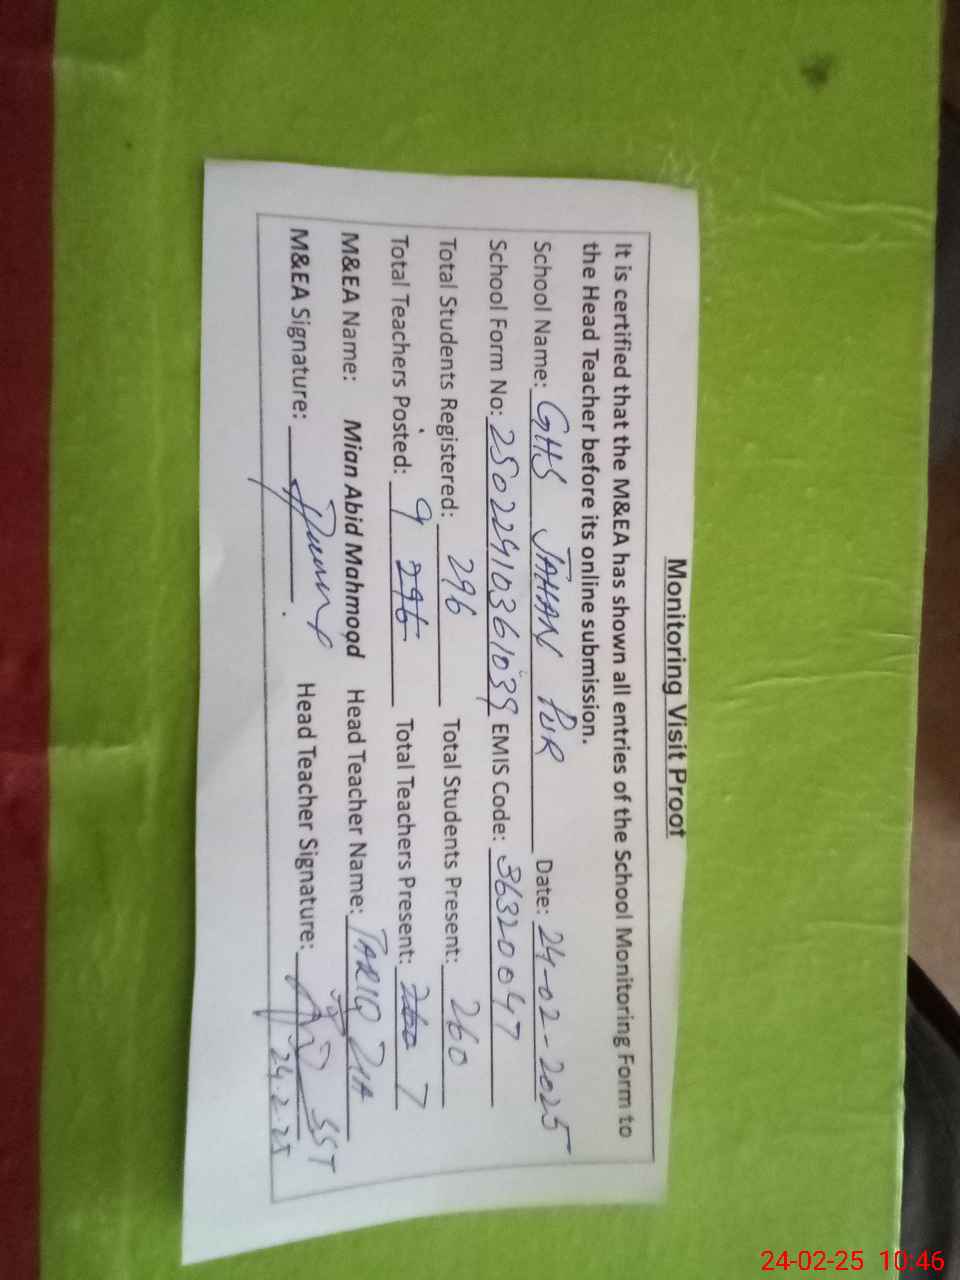 Monitoring Visit Proof
It is certified that the M&EA has shown all entries of the School Monitoring Form to
the Head Teacher before its online submission.
School Name: GHS JAHAN PUR Date: 24-02-2025
School Form No: 25022910361039 EMIS Code: 36320047
Total Students Registered: 296 Total Students Present: 260
Total Teachers Posted: 9 296 Total Teachers Present: 260 7
M&EA Name: Mian Abid Mahmood Head Teacher Name: TARIQ ZIA
M&EA Signature: Head Teacher Signature: SST
24.2.25
24-02-25 10:46